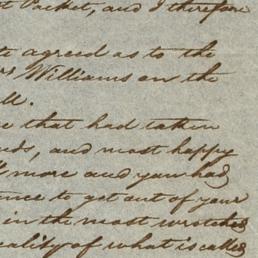 Packet, and I therefore
agreed as to the
Williams on the
that had taken
and most happy
more and you had
to get out of your
in the most wretched
of what is called